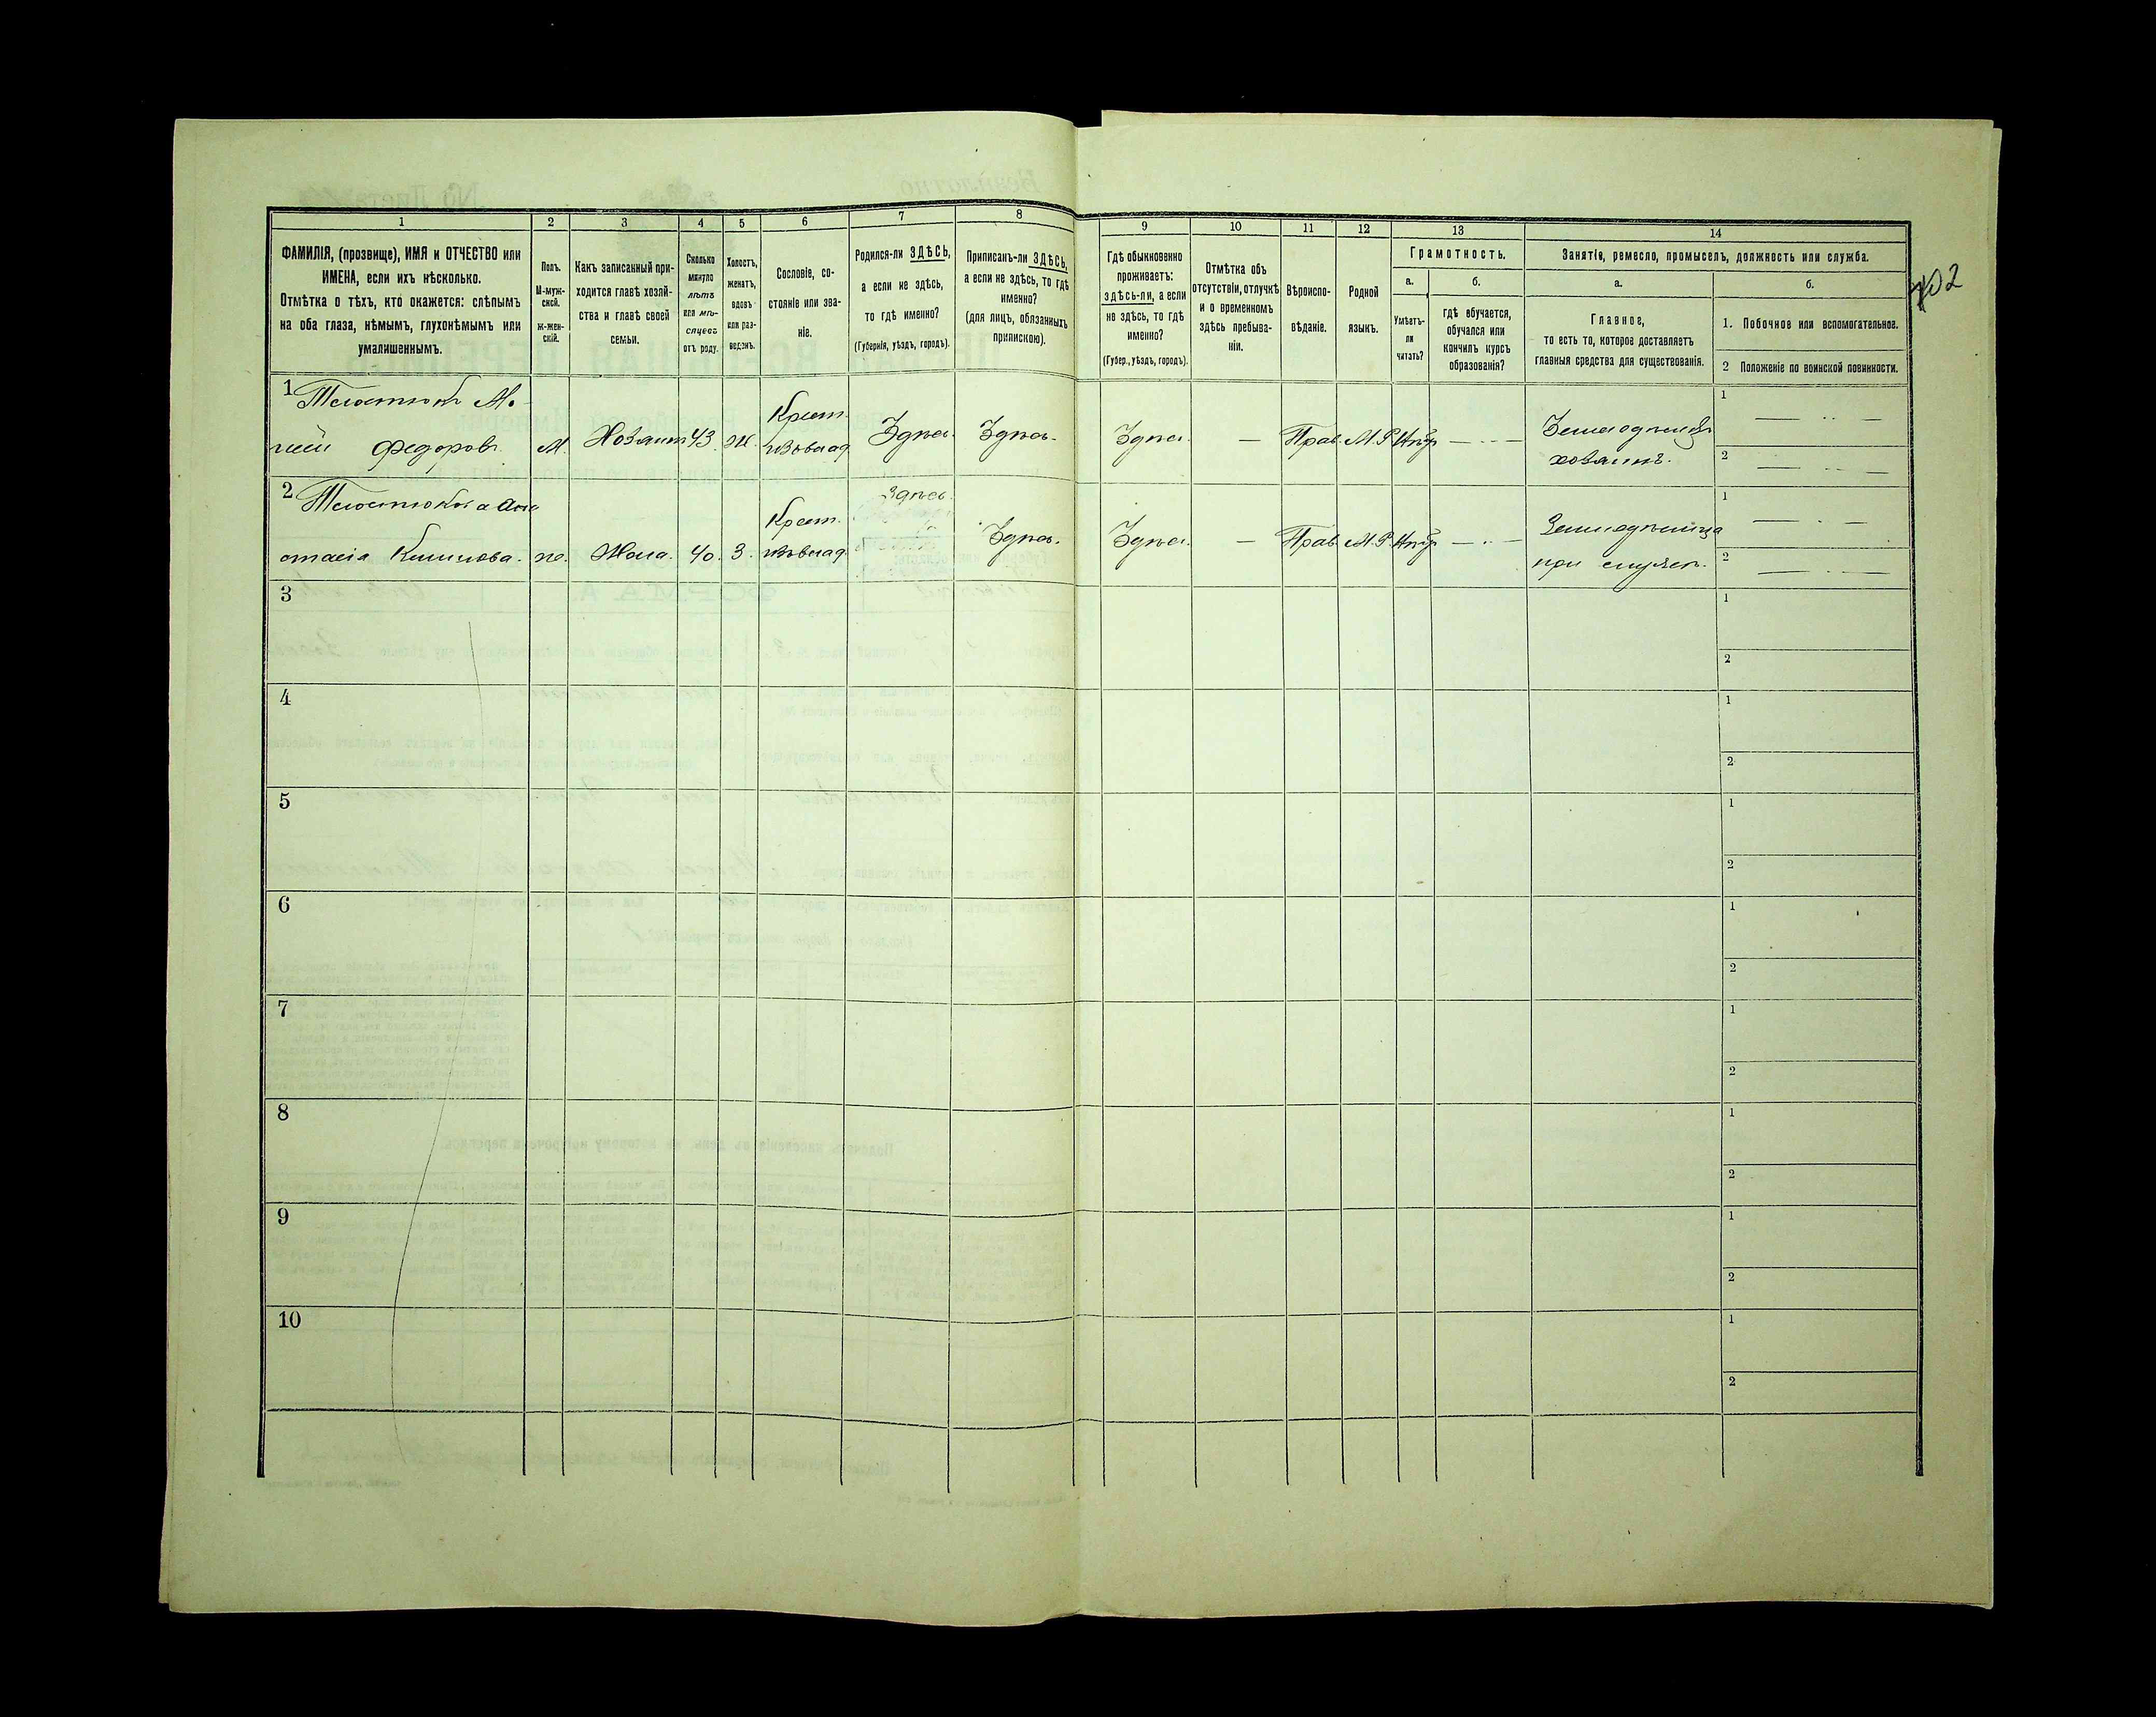 1 2 3 4 5 6 7 8 9 10 11 12 13 14
ФАМИЛІЯ, (прозвище), ИМЯ и ОТЧЕСТВО или
ИМЕНА, если ихъ нѣсколько.
Отмѣтка о тѣхъ, кто окажется: слѣпымъ
на оба глаза, нѣмымъ, глухонѣмымъ или
умалишеннымъ.
Полъ.
М-муж-
ской.
ж-жен-
скій.
Какъ записанный при-
ходится главѣ хозяй-
ства и главѣ своей
семьи.
Сколько
минуло
лѣтъ
или мѣ-
сяцевъ
отъ роду.
Холостъ,
женатъ,
вдовъ
или раз-
веденъ.
Сословіе, со-
стояніе или зва-
ніе.
Родился-ли ЗДѢСЬ,
а если не здѣсь,
то гдѣ именно?
(Губернія, уѣздъ, городъ).
Приписанъ-ли ЗДѢСЬ,
а если не здѣсь, то гдѣ
именно?
(для лицъ, обязанныхъ
припискою).
Гдѣ обыкновенно
проживаетъ:
здѣсь-ли, а если
не здѣсь, то гдѣ
именно?
(Губер., уѣздъ, городъ).
Отмѣтка объ
отсутствіи, отлучкѣ
и о временномъ
здѣсь пребыва-
ніи.
Вѣроиспо-
вѣданіе.
Родной
языкъ.
Грамотность.
а.
Умѣетъ-
ли
читать?
б.
гдѣ обучается,
обучался или
кончилъ курсъ
образованія?
Занятіе, ремесло, промыселъ, должность или служба.
а.
Главное,
то есть то, которое доставляетъ
главныя средства для существованія.
б.
1. Побочное или вспомогательное.
2 Положеніе по воинской повинности.
402
1
Федоровъ М. Хозяинъ 43 Ж. Крест. Здѣсь. Здѣсь. Здѣсь. — Прав. М.Р. Нѣтъ — Земледѣлецъ
хозяинъ.
1
2
2
Здѣсь.
стасія ж. Жена. 40. З. Крест. Здѣсь. Здѣсь. — Прав. М.Р. Нѣтъ — Земледѣлица
при мужѣ.
1
2
3
1
2
4
1
2
5
1
2
6
1
2
7
1
2
8
1
2
9
1
2
10
1
2